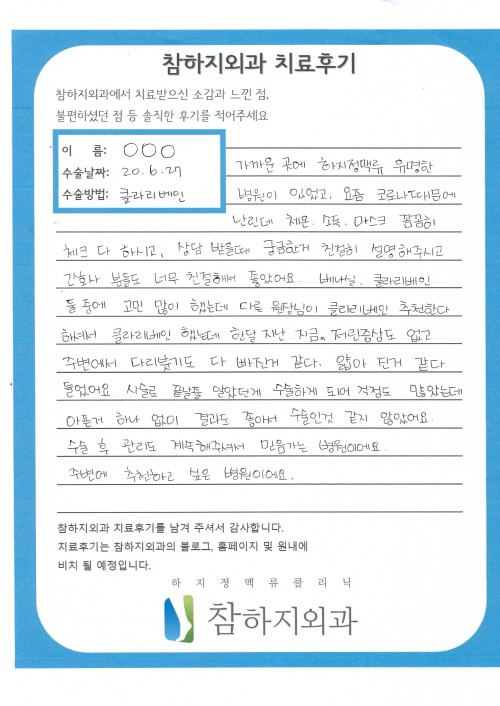 참하지외과 치료후기
참하지외과에서 치료받으신 소감과 느낀 점,
불편하셨던 점 등 솔직한 후기를 적어주세요
이 름: ○○○
수술날짜: 20.6.27
수술방법: 클라리베인
가까운 곳에 하지정맥류 유명한
병원이 있었고, 요즘 코로나때문에
난린데 체온. 소독. 마스크 꼼꼼히
체크 다 하시고, 상담 받을때 궁금한거 친절히 설명해주시고
간호사 분들도 너무 친절해서 좋았어요. 베나실, 클라리베인
둘 중에 고민 많이 했는데 다른 원장님이 클라리베인 추천한다
하셔서 클라리베인 했는데 한달 지난 지금. 저린증상도 없고
주변에서 다리붓기도 다 빠진거 같다. 얇아 진거 같다
들었어요. 시술로 끝날줄 알았던게 수술하게 되어 걱정도 많았는데
아픈거 하나 없이 결과도 좋아서 수술인것 같지 않았어요.
수술 후 관리도 계속해주셔서 믿음가는 병원이에요.
주변에 추천하고 싶은 병원이에요.
참하지외과 치료후기를 남겨 주셔서 감사합니다.
치료후기는 참하지외과의 블로그, 홈페이지 및 원내에
비치 될 예정입니다.
하지정맥류클리닉
참하지외과